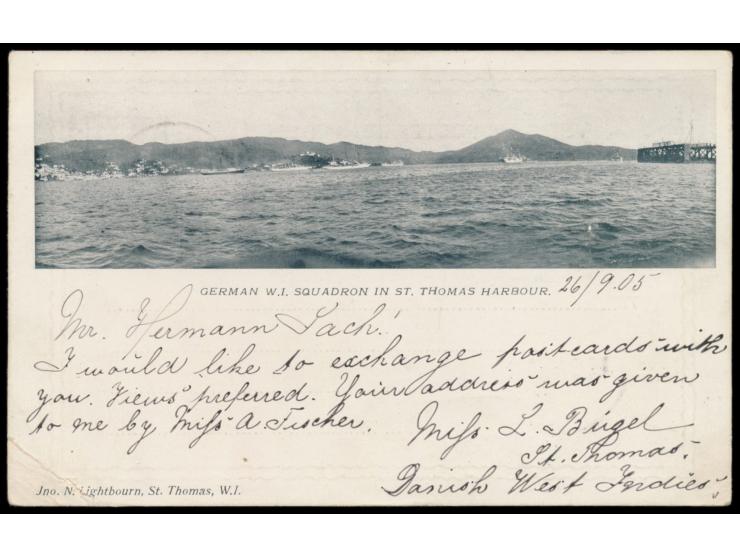 GERMAN W.I. SQUADRON IN ST. THOMAS HARBOUR.
26/9.05
Mr. Hermann Sach!
I would like to exchange postcards with
you. Views preferred. Your address was given
to me by Miss A Fischer.
Miss L. Bügel
St. Thomas.
Danish West Indies.
Jno. N. Lightbourn, St. Thomas, W.I.